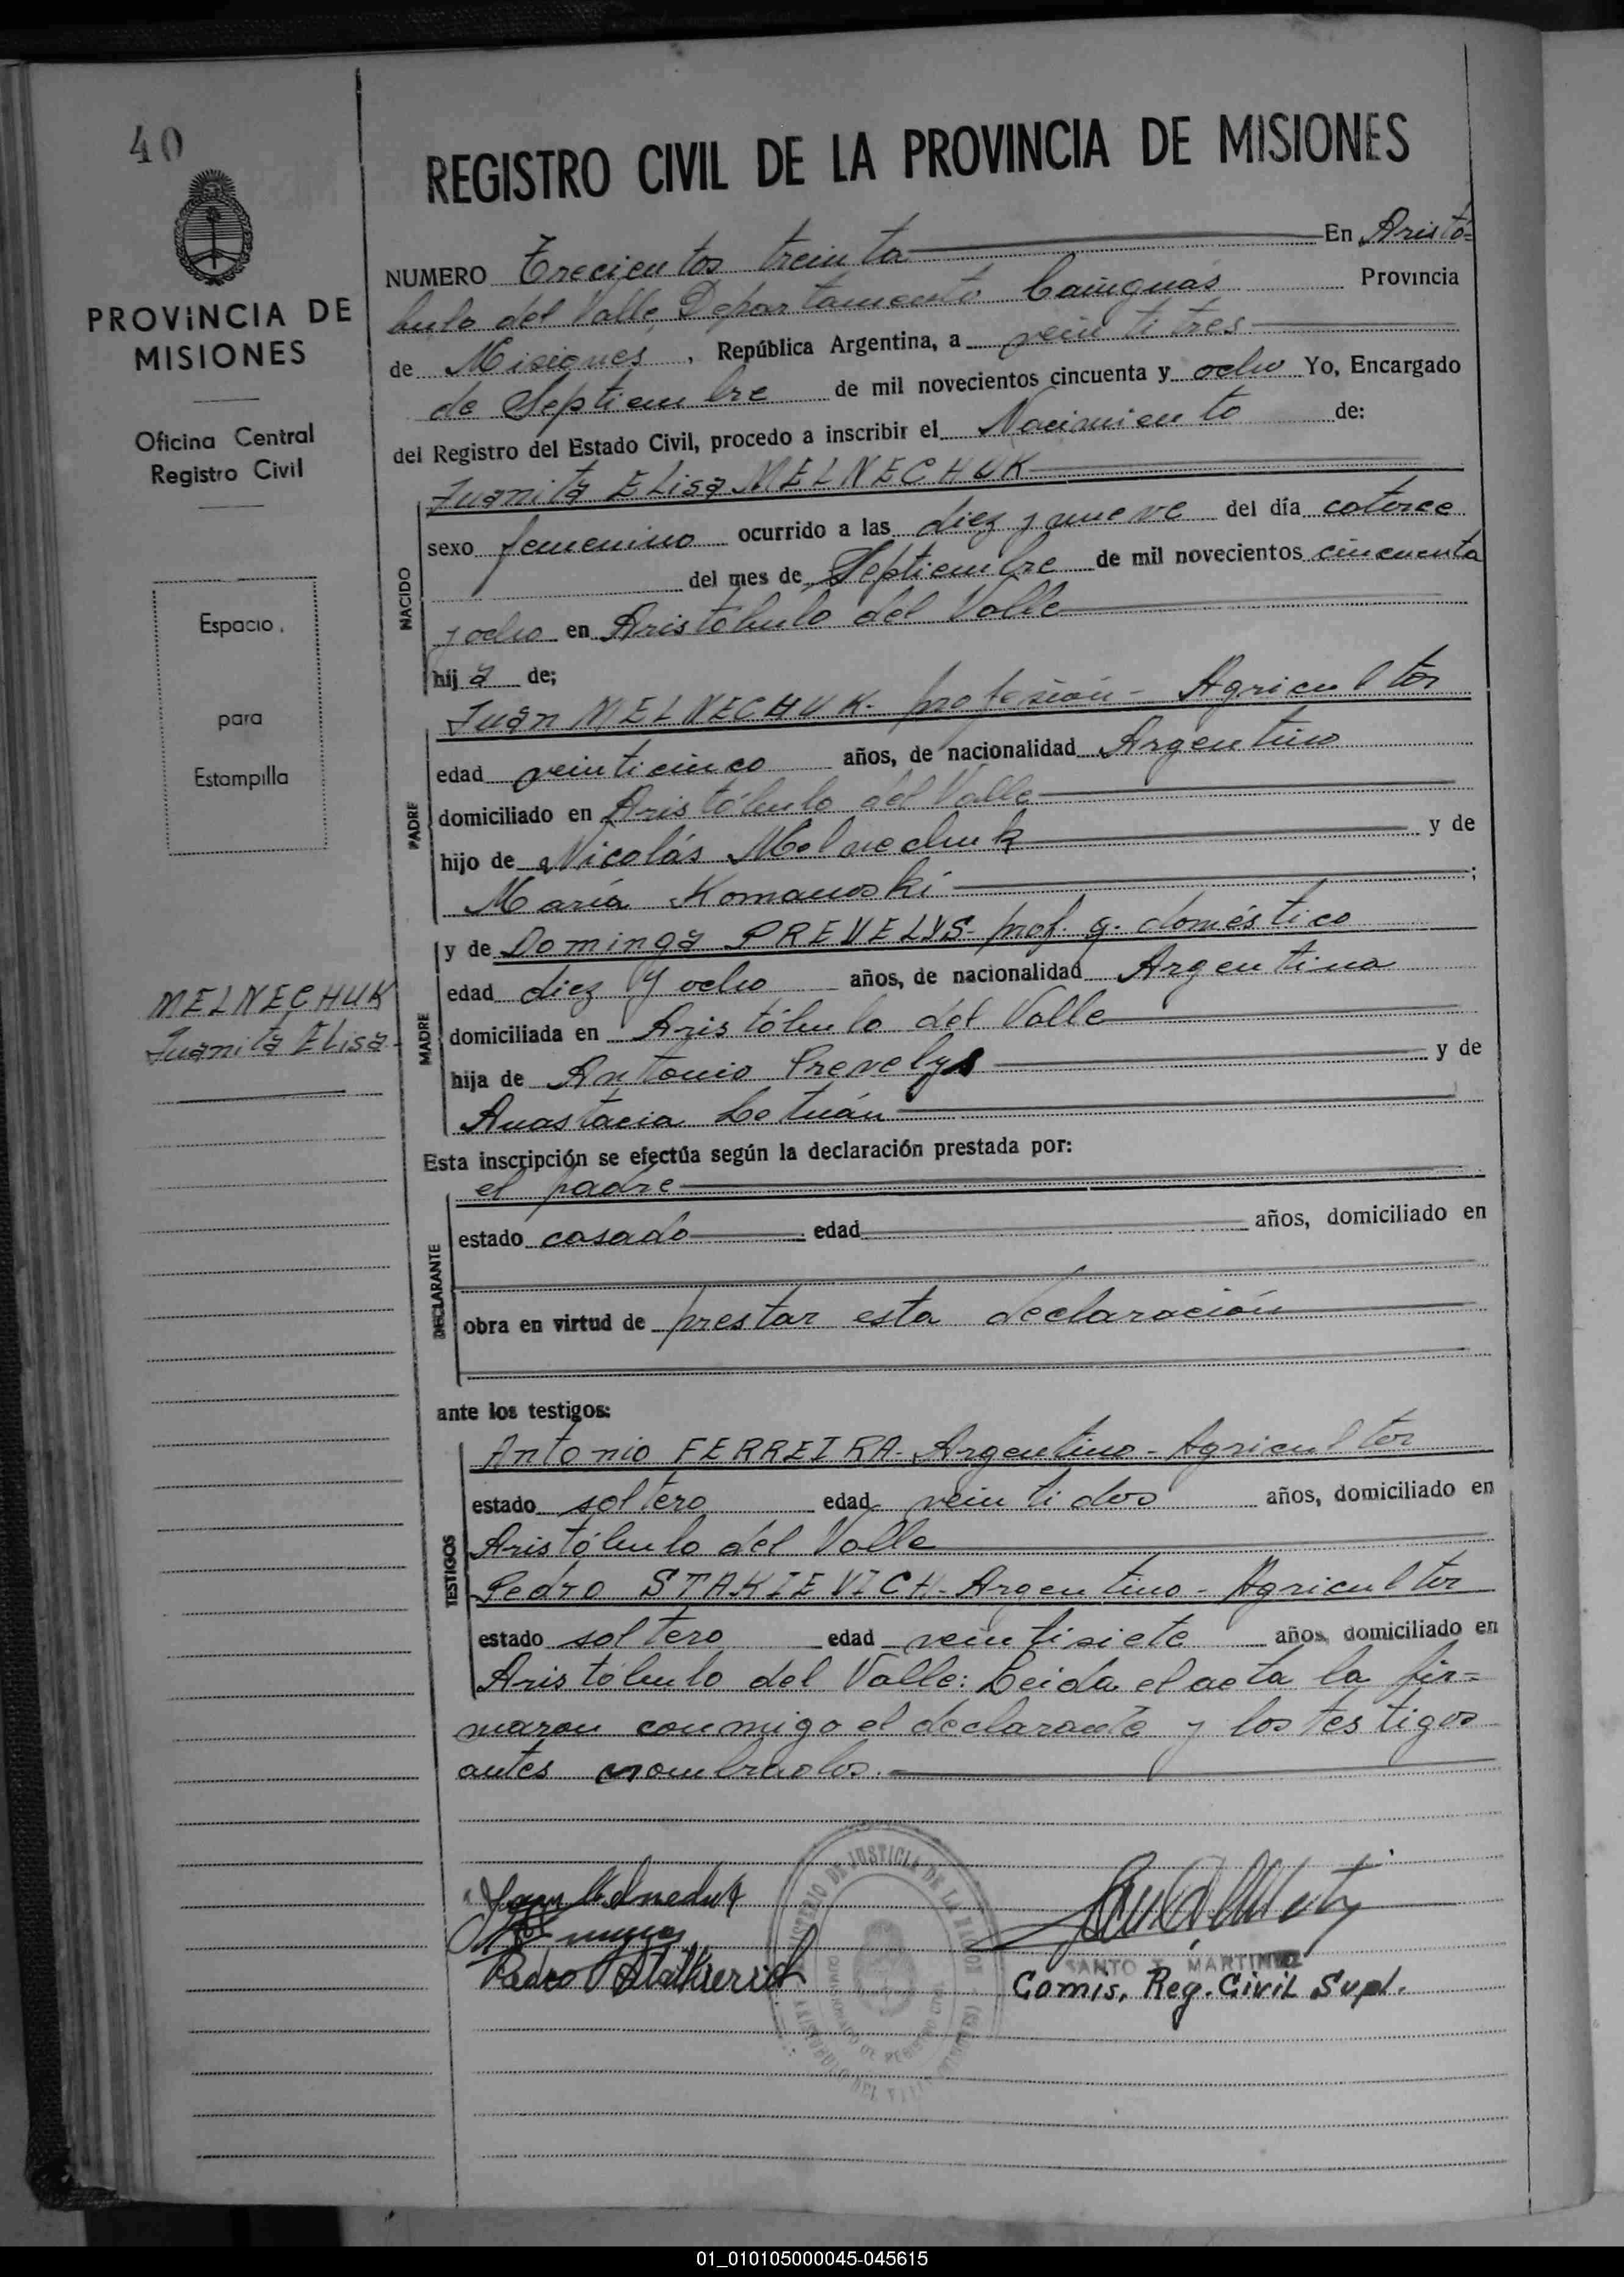 40
REGISTRO CIVIL DE LA PROVINCIA DE MISIONES
PROVINCIA DE
MISIONES
Oficina Central
Registro Civil
Espacio
para
Estampilla
MELNECHUK
Juanita Elisa
NUMERO Trecientos treinta En Aristó=
bulo del Valle, Departamento Cainguás Provincia
de Misiones, República Argentina, a veintitres
de Septiembre de mil novecientos cincuenta y ocho Yo, Encargado
del Registro del Estado Civil, procedo a inscribir el Nacimiento de:
NACIDO
Juanita ELisa MELNECHUK
sexo femenino ocurrido a las diez y nueve del día catorce
del mes de Septiembre de mil novecientos cincuenta
y ocho en Aristóbulo del Valle
hij a de;
PADRE
Juan MELNECHUK- profesión- Agricultor
edad veinticinco años, de nacionalidad Argentino
domiciliado en Aristóbulo del Valle
hijo de Nicolás Melnechuk y de
María Komanoski ;
MADRE
y de Dominga PREVELYS- prof. q. doméstico
edad diez y ocho años, de nacionalidad Argentina
domiciliada en Aristóbulo del Valle
hija de Antonio Prevelys y de
Anastacia
Esta inscripción se efectúa según la declaración prestada por:
DECLARANTE
el padre
estado casado edad años, domiciliado en
obra en virtud de prestar esta declaración
ante los testigos:
TESTIGOS
Antonio FERREIRA- Argentino- Agricultor
estado soltero edad veintidos años, domiciliado en
Aristóbulo del Valle
Pedro STAKIEVICH- Argentino- Agricultor
estado soltero edad veintisiete años, domiciliado en
Aristóbulo del Valle: Leida el acta la fir=
maron conmigo el declarante y los testigos
antes nombrados.-
Juan Melnechuk
Pedro
MINISTERIO DE JUSTICIA DE LA NACION
ARISTOBULO DEL VALLE (MISIONES)
SANTO MARTINEZ
Comis, Reg. Civil Supl.
01_010105000045-045615